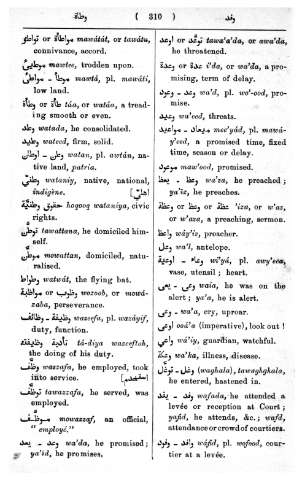 وطاة ( 310 ) وفد
مواطاة or تواطؤ mawátát, or tawátu,
connivance, accord.
mawtee, trodden upon.
موطا - مواطئ mawtá, pl. mawáti,
low land.
وطاة táa, or watáa, a tread-
ing smooth or even.
وطد watada, he consolidated.
وطيد wateed, firm, solid.
وطن - اوطان watan, pl. awtán, na-
tive land, patria.
وطني wataniy, native, national,
indigène.
حقوق وطنية hogoog wataniya, civic
rights.
توطن tawattana, he domiciled him-
self.
موطن mowattan, domiciled, natu-
ralised.
وطواط watwát, the flying bat.
وظوب or مواظبة wozoob, or mowá-
zaba, perseverance.
وظيفة - وظائف wazeefa, pl. wazáyif,
duty, function.
تادية وظيفته tá-diya wazeefteh,
the doing of his duty.
وظف wazafa, he employed, took
into service.
توظف tawazzafa, he served, was
employed.
موظف mowazzaf, an official,
"employé."
وعد - يعد wa'da, he promised;
ya'id, he promises.
توعد or اوعد tawa'a'da, or awa'da,
he threatened.
عدة or وعدة i'da, or wa'da, a pro-
mising, term of delay.
وعد - وعود wa'd, pl. wo'-ood, pro-
mise.
وعيد wa'eed, threat.
ميعاد - مواعيد mee'yád, pl. mawá-
y'eed, a promised time, fixed
time, season or delay.
موعود maw'ood, promised.
وعظ - يعظ wa'za, he preached;
ya'iz, he preaches.
عظة or وعظ or وعظة 'iza, or w'az,
or w'aza, a preaching, sermon.
واعظ wáy'iz, preacher.
وعل wa'l, antelope.
وعاء - اوعية wi'yá, pl. awy'eea,
vase, utensil; heart.
وعى - يعي waia, he was on the
alert; ya'a, he is alert.
وعى wa'a, cry, uproar.
اوعى ooá'a (imperative), look out!
واعي wáy'i, guardian, watchful.
وعكة wa'ka, illness, disease.
وغل - توغل (waghala), tawaghghala,
he entered, hastened in.
وفد - يفد wafada, he attended a
levée or reception at Court;
yafid, he attends, &c.; wafd,
attendance or crowd of courtiers.
وافد - وفود wáfid, pl. wofood, cour-
tier at a levée.